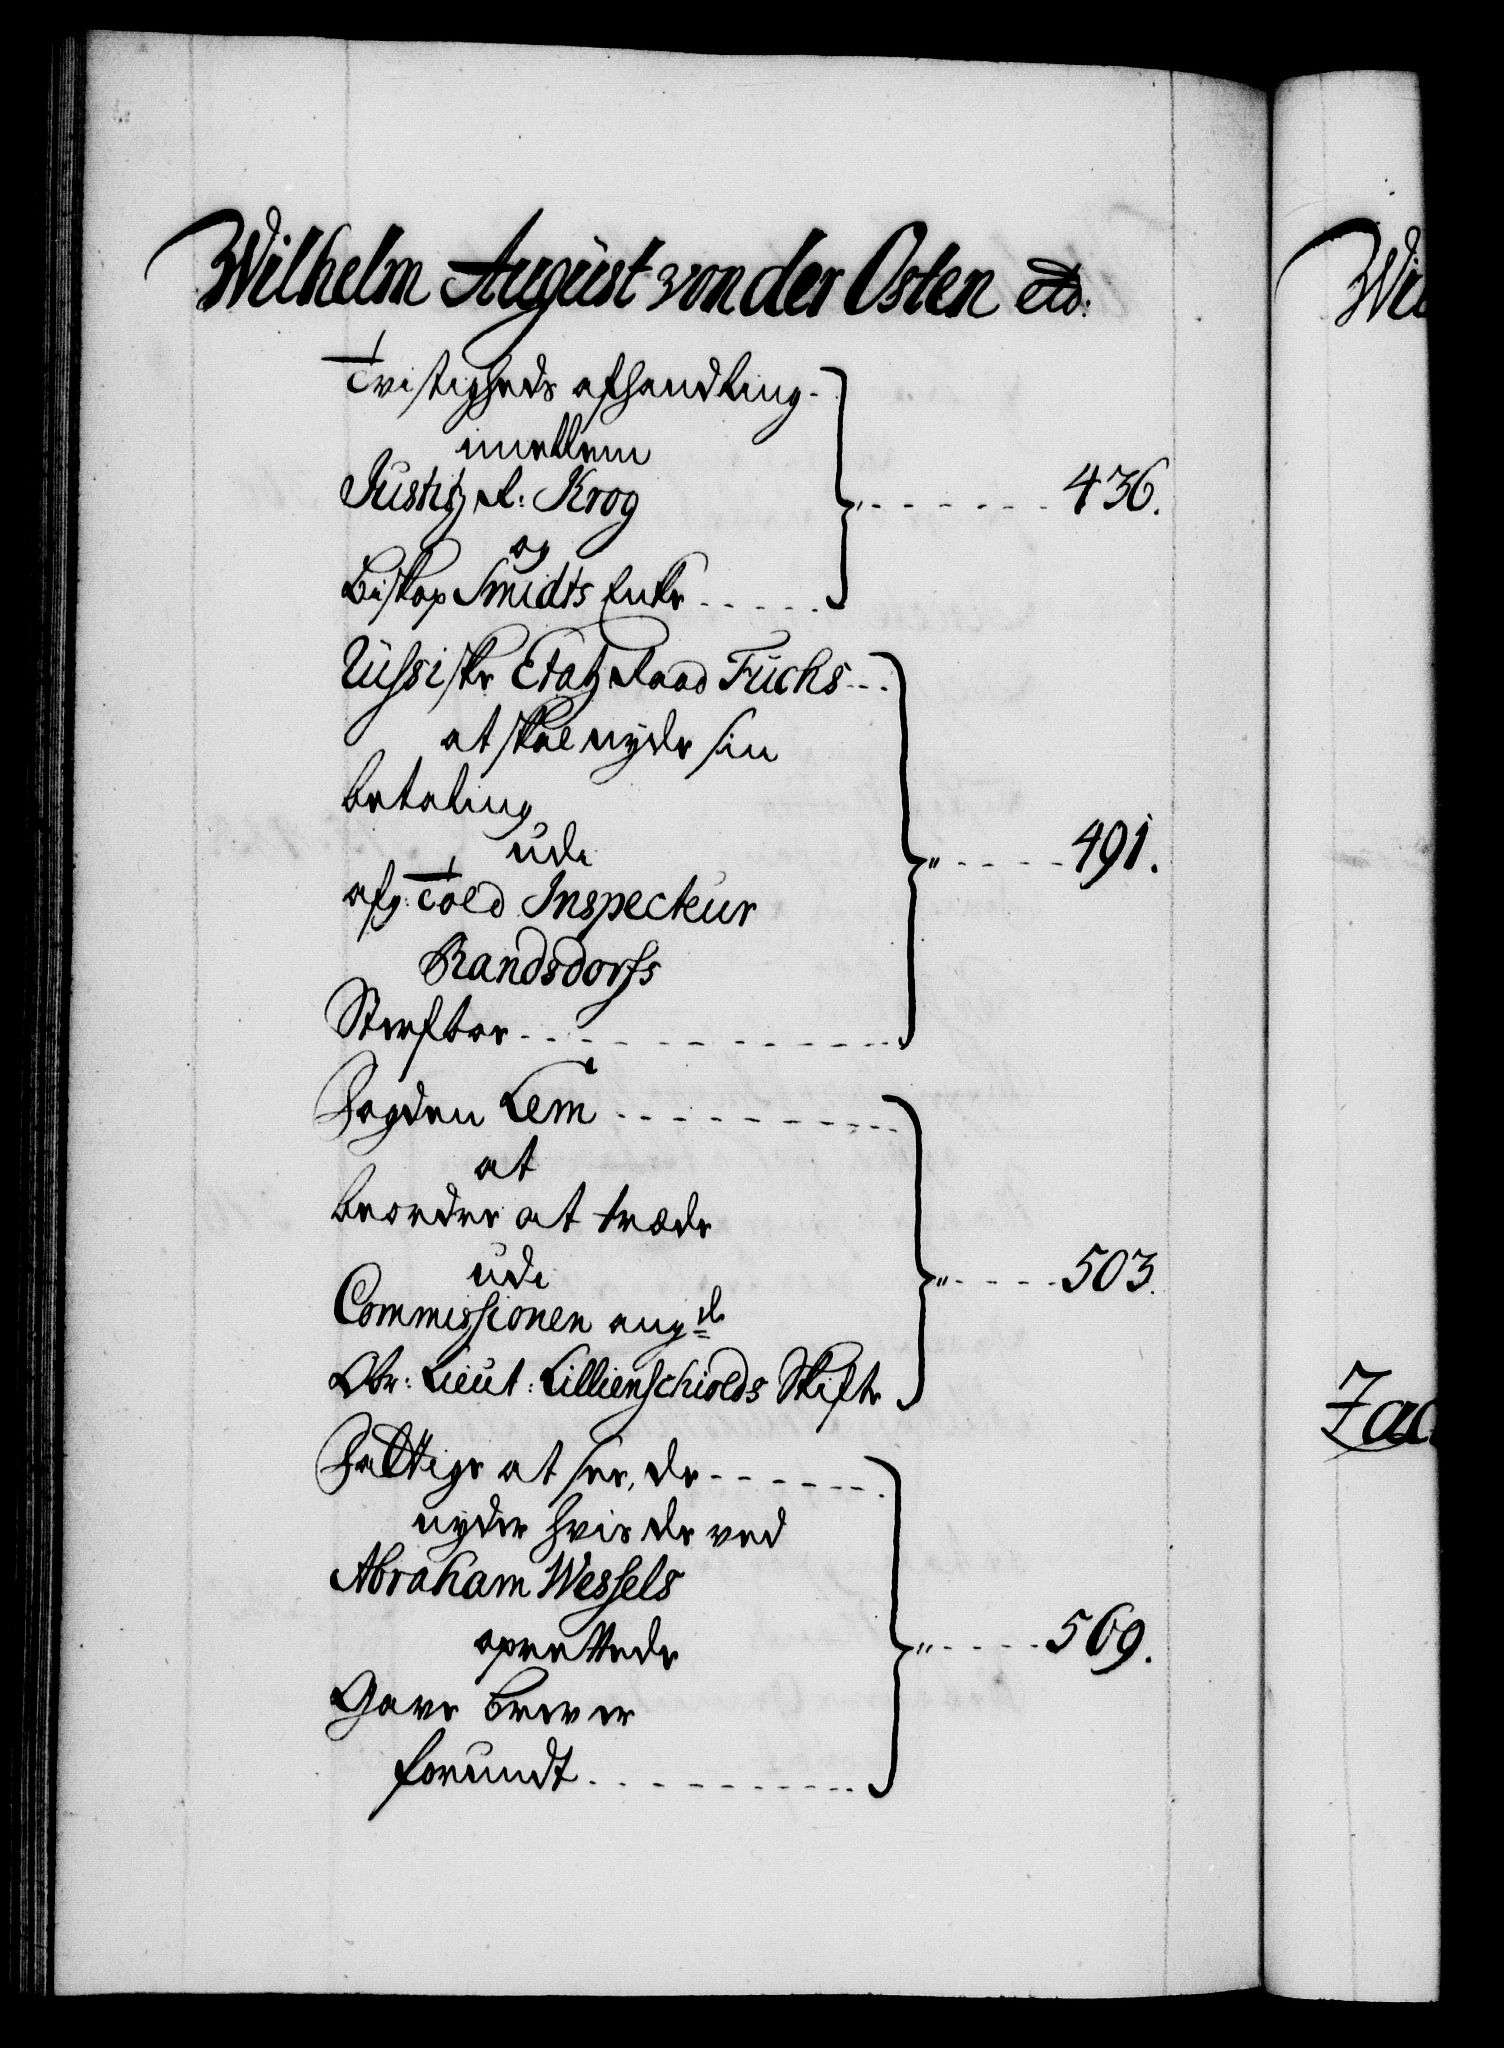 Wilhelm August von der Osten etc:
Tvistigheds afhandling
imellem
Justitz R: Krog
og
Biskop Smidts Enke
Russiske Etatz Raad Fuchs
at skal nyde sin
betaling
udi
afg: Told Inspecteur
Randsdorfs
Sterfboe
436.
491.
Fogden Lem
at
beordre at træde
udi
Commissionen angde
Obr: Lieut: Lillienschiolds Skifte
503.
Fattige at see, de
nyder hvis de ved
Abraham Wessels
oprettede
Gave brever
forundt
569.
Wil
Zac